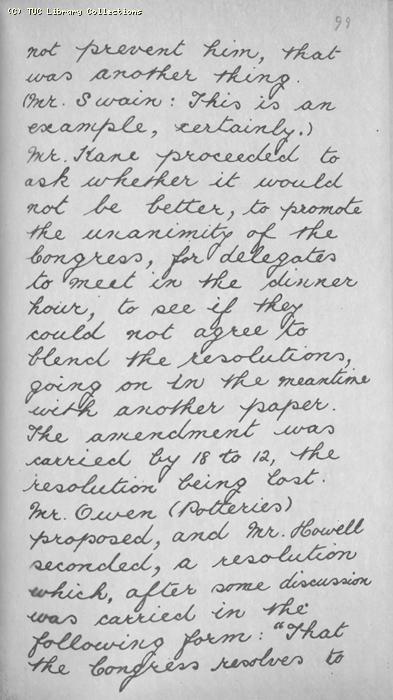 (C) TUC Library Collections
99
not prevent him, that
was another thing.
(Mr. Swain: This is an
example, certainly.)
Mr. Kane proceeded to
ask whether it would
not be better, to promote
the unanimity of the
Congress, for delegates
to meet in the dinner
hour, to see if they
could not agree to
blend the resolutions,
going on in the meantime
with another paper.
The amendment was
carried by 18 to 12, the
resolution being lost.
Mr. Owen (Potteries)
proposed, and Mr. Howell
seconded, a resolution
which, after some discussion
was carried in the
following form: "That
the Congress resolves to